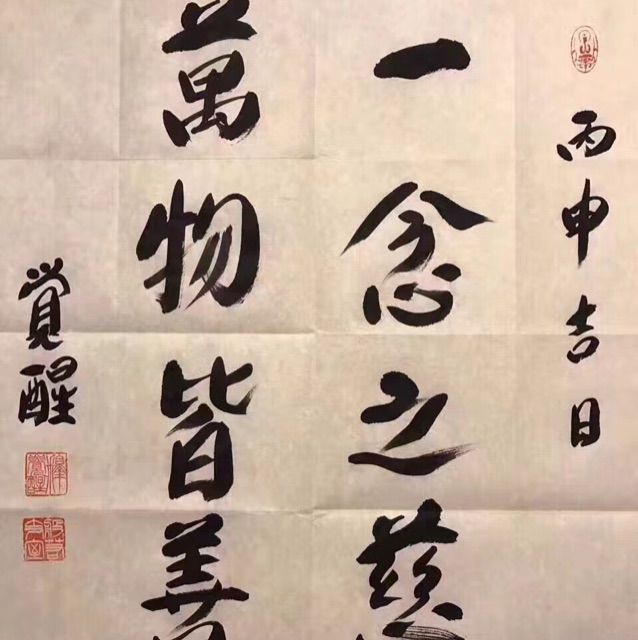 丙申吉日
一念之慈
萬物皆善
覺醒